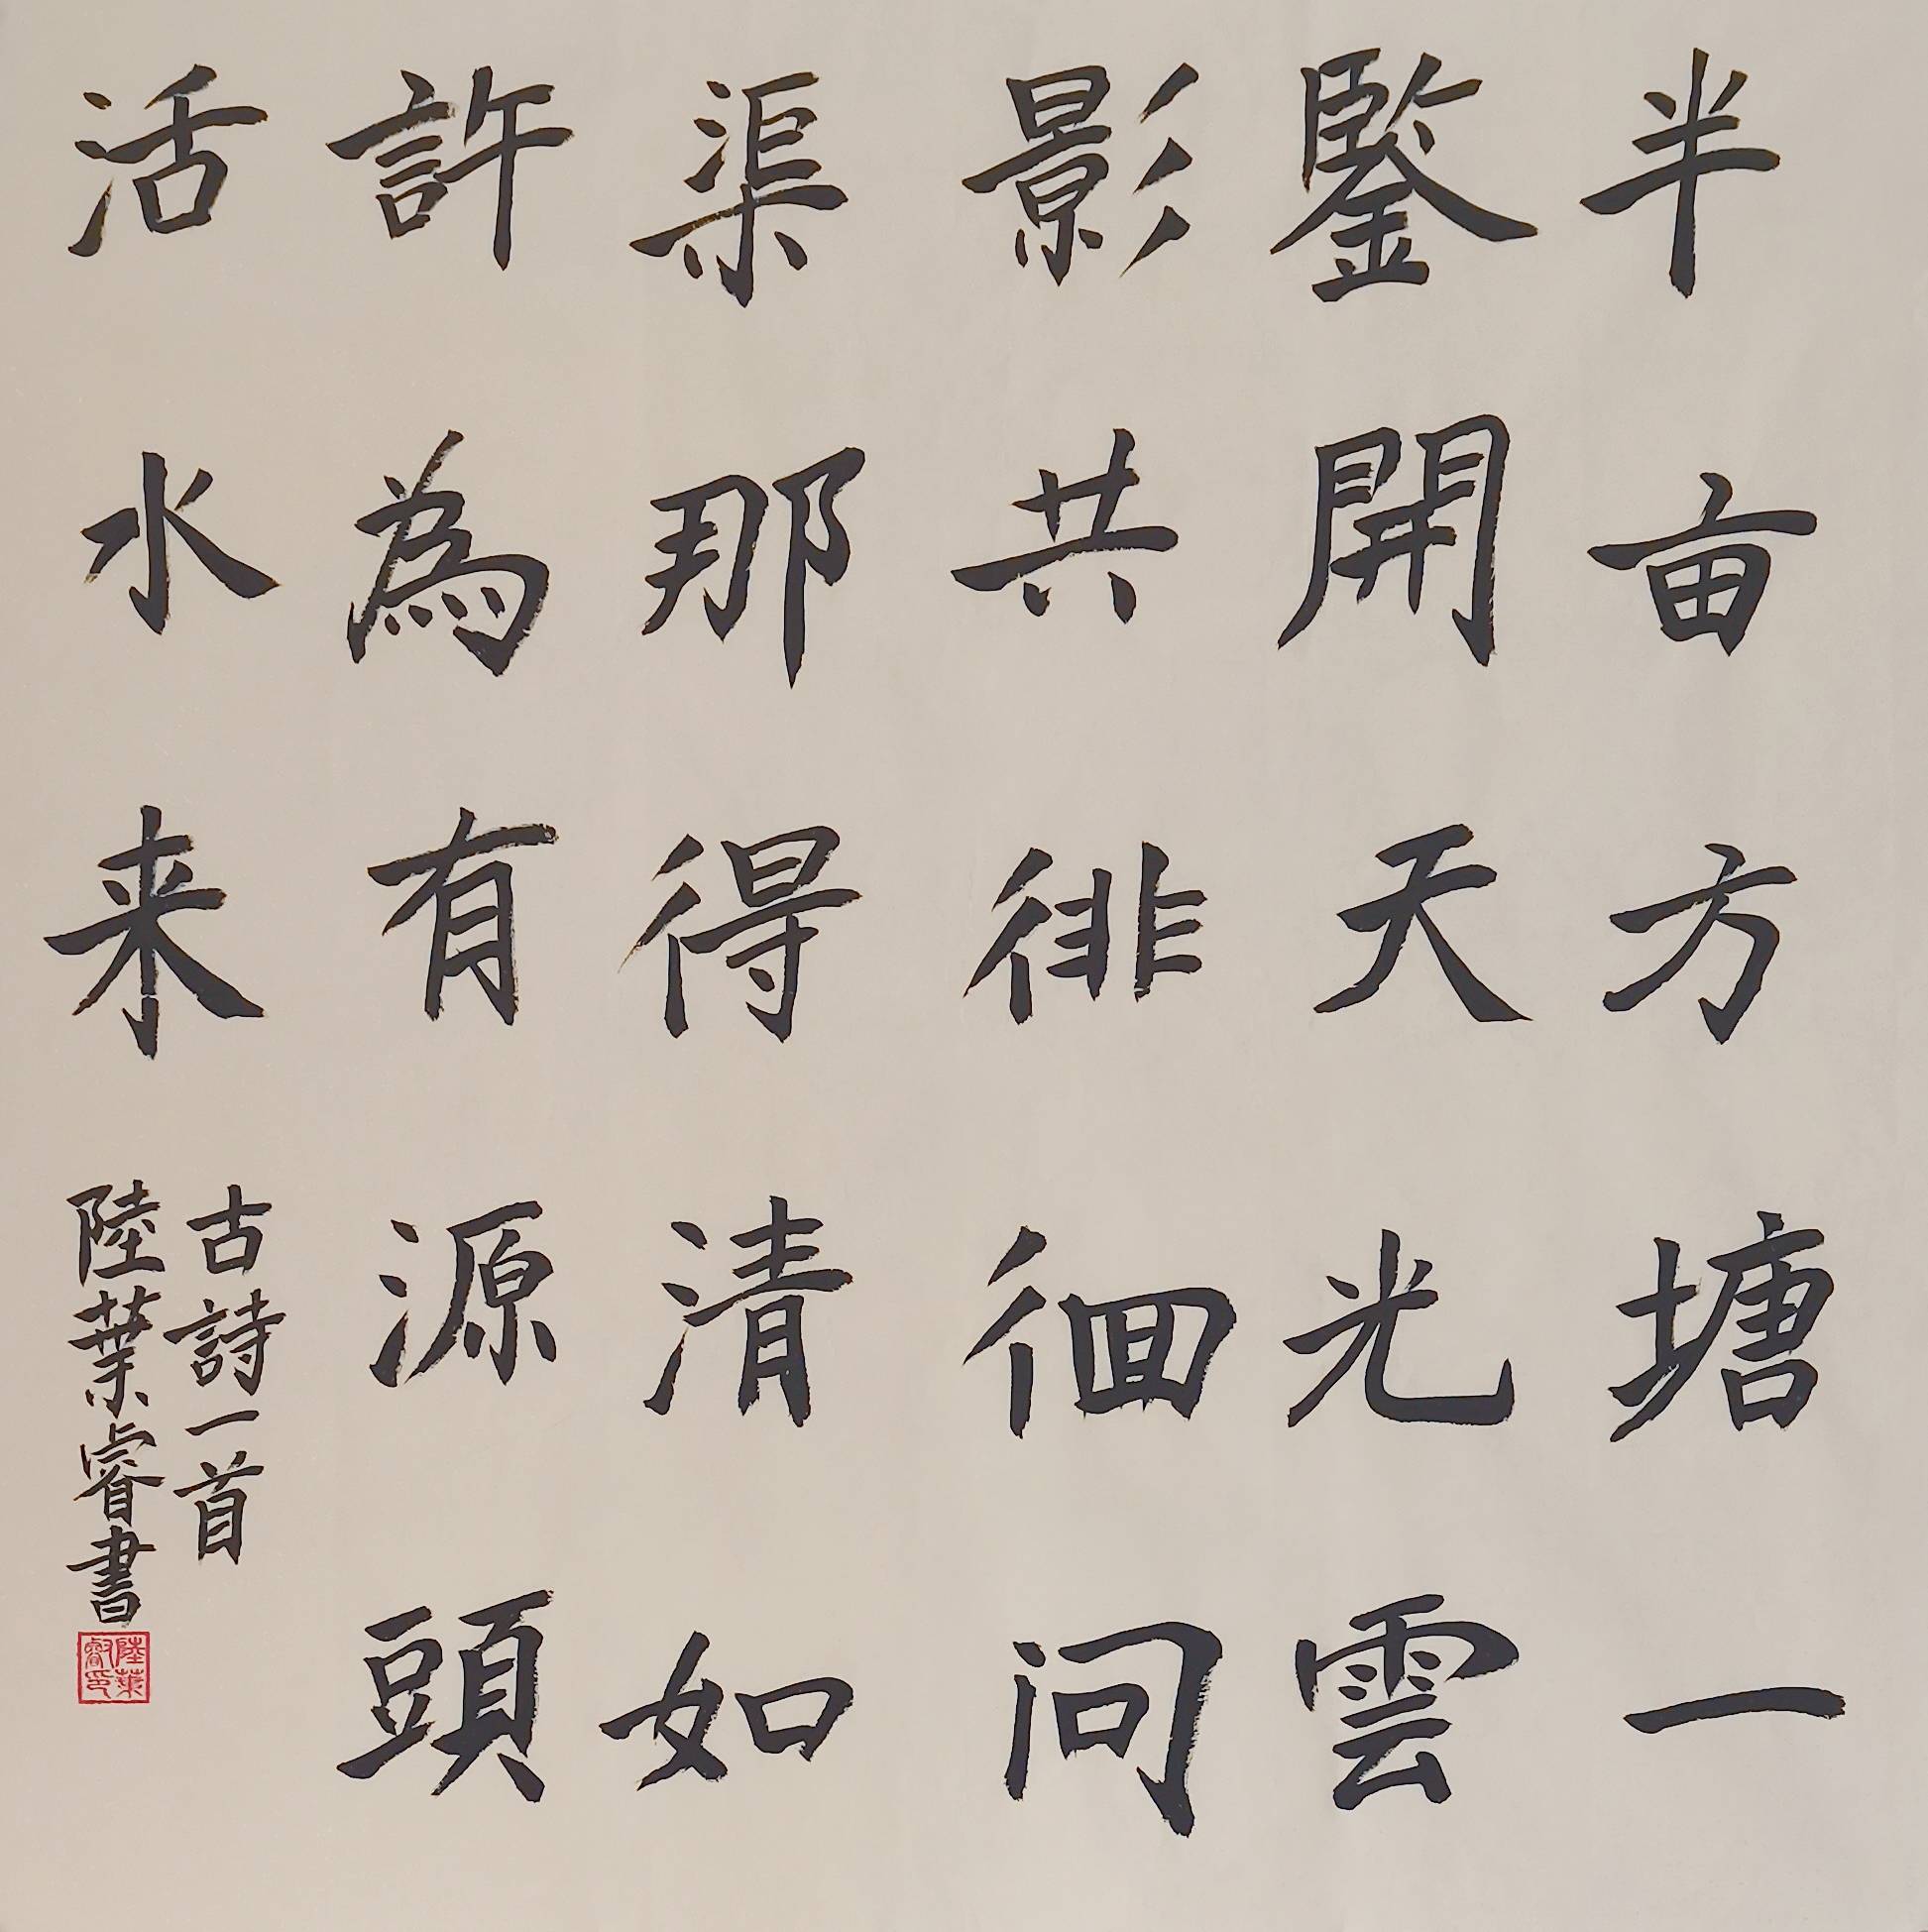 半亩方塘一
鑒開天光雲
影共徘徊问
渠那得清如
許為有源頭
活水来
古詩一首
陸葉睿書
陸葉
睿印